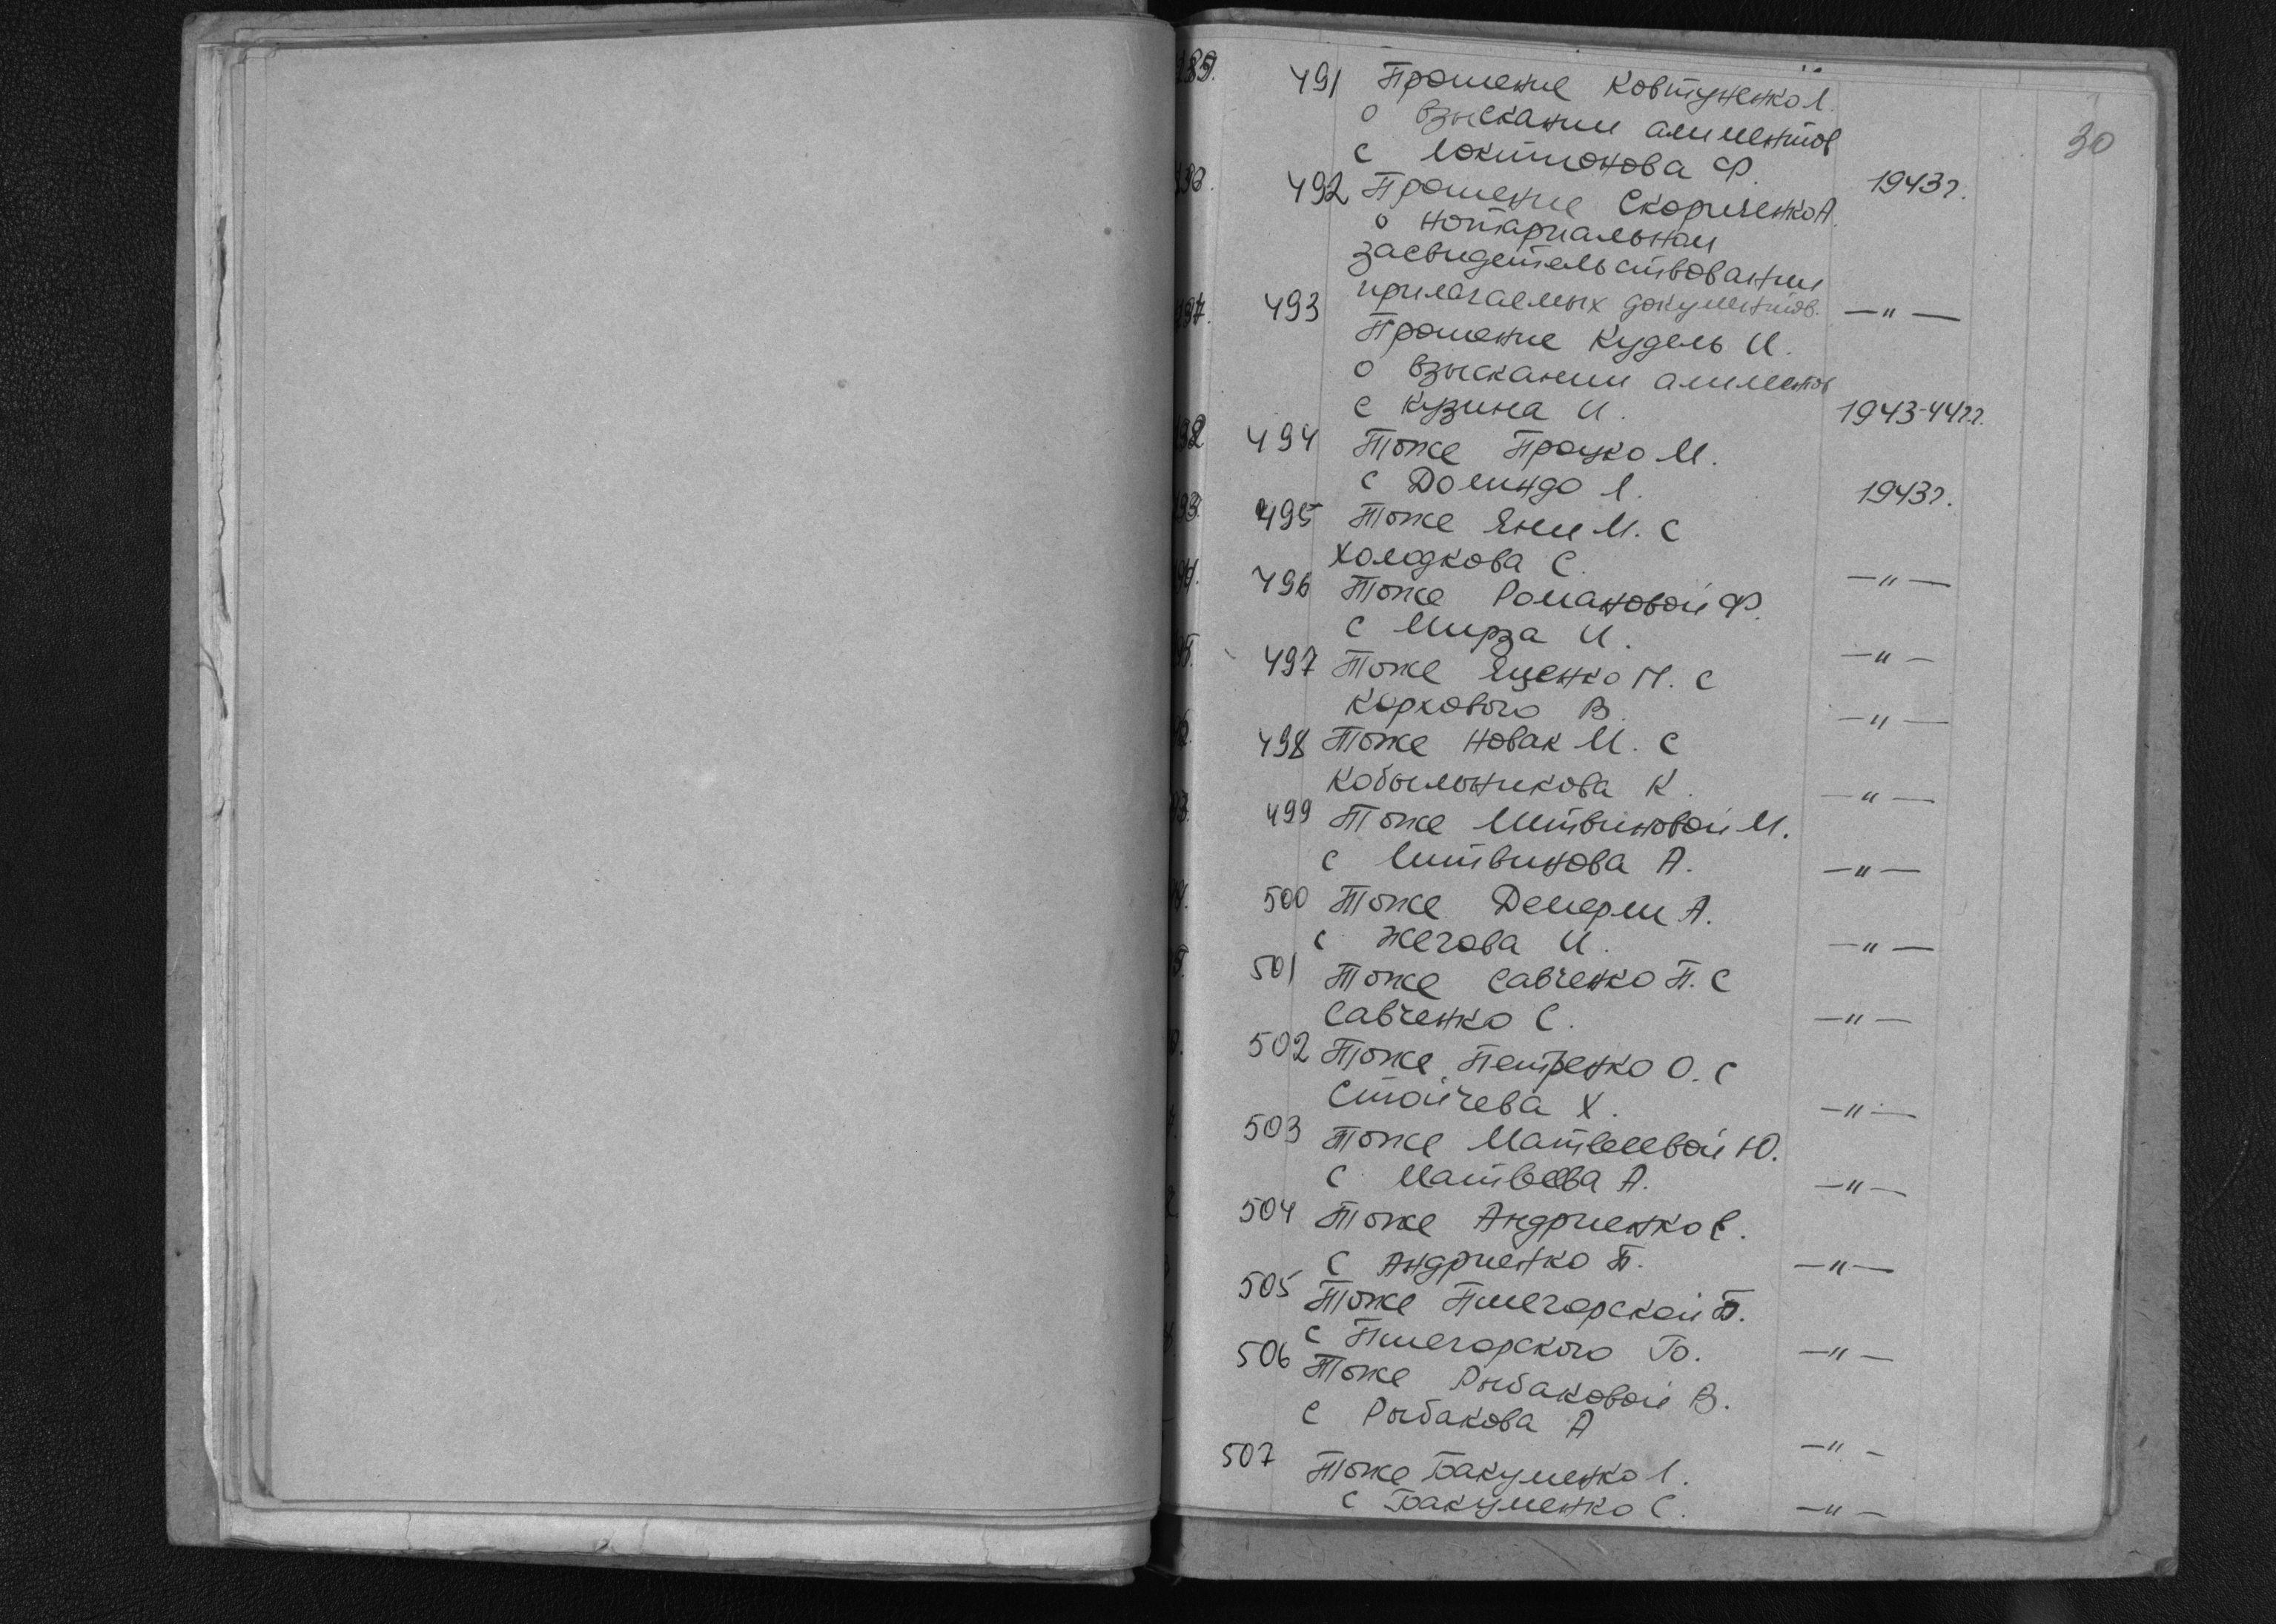 30
491 Прошение Ковтуненко Л.
о взыскании алиментов
с Локтионова Ф. 1943г.
492 Прошение Скориченко А.
о нотариальном
засвидетельствовании
прилагаемых документов. —"—
493 Прошение Кудель И.
о взыскании алиментов
с Кузина И. 1943-44гг.
494 Тоже Процко М.
с Долиндо Л. 1943г.
495 Тоже Яни М. с
Холодкова С. —"—
496 Тоже Романовой Ф.
с Мирза И. —"—
497 Тоже Яценко Н. с
Коркового В. —"—
498 Тоже Новак М. с
Кобыльникова К. —"—
499 Тоже Литвиновой М.
с Литвинова А. —"—
500 Тоже А.
с Жегова И. —"—
501 Тоже Савченко П. с
Савченко С. —"—
502 Тоже Петренко О. с
Стойчева Х. —"—
503 Тоже Матвеевой Ю.
с Матвеева А. —"—
504 Тоже Андриенко Е.
с Андриенко П. —"—
505 Тоже Пшегорской Б.
с Пшегорского Ю. —"—
506 Тоже Рыбаковой В.
с Рыбакова А —"—
507 Тоже Бакуменко Л.
с Бакуменко С. —"—